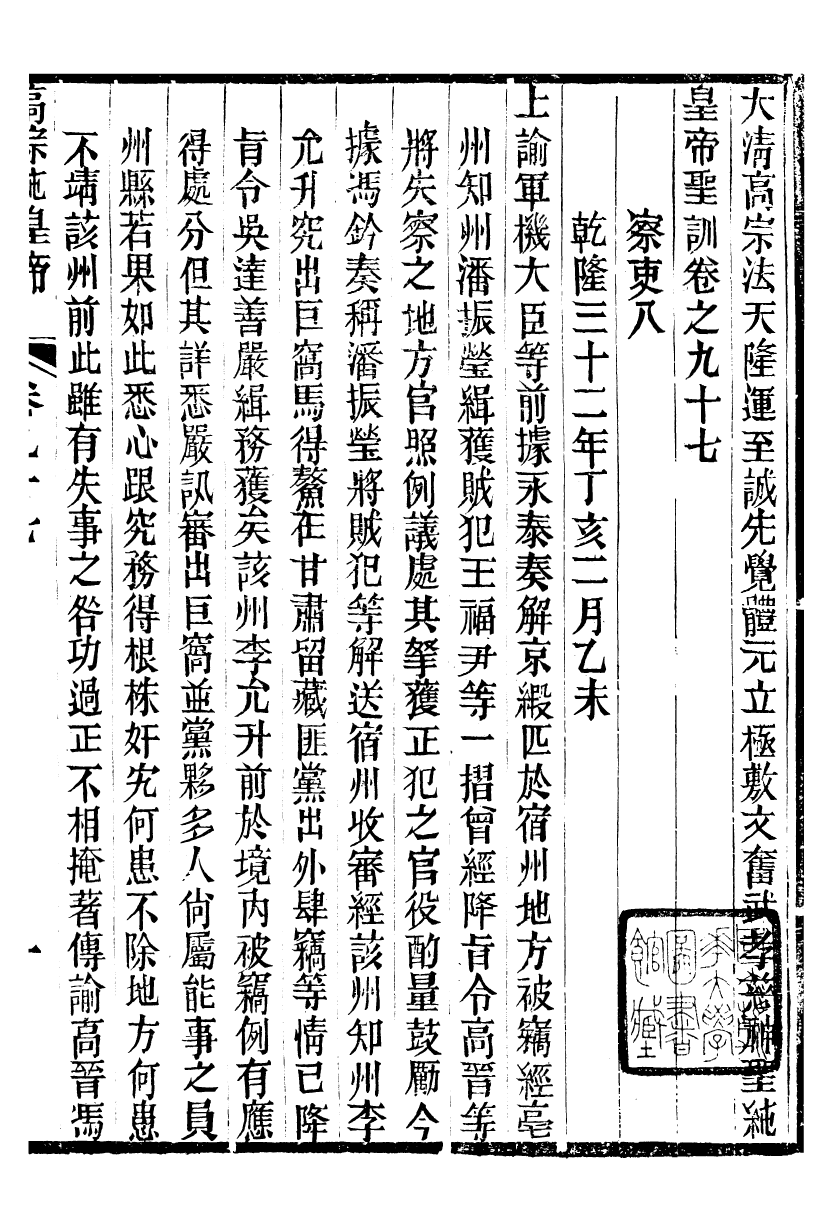 大清高宗法天隆運至誠先覺體元立極敷文奮武孝慈神聖純
皇帝聖訓卷之九十七
察吏八
乾隆三十二年丁亥二月乙未
上諭軍機大臣等前據永泰奏解京緞匹於宿州地方被竊經亳
州知州潘振瑩緝獲賊犯王福尹等一摺曾經降旨令高晉等
將失察之地方官照例議處其拏獲正犯之官役酌量鼓勵今
據馮鈐奏稱潘振瑩將賊犯等解送宿州收審經該州知州李
允升究出巨窩馬得鰲在甘肅留藏匪黨出外肆竊等情已降
旨令吳達善嚴緝務獲矣該州李允升前於境內被竊例有應
得處分但其詳悉嚴訊審出巨窩並黨夥多人尙屬能事之員
州縣若果如此悉心跟究務得根株奸宄何患不除地方何患
不靖該州前此雖有失事之咎功過正不相掩著傳諭高晉馮
高宗純皇帝 卷九十七 一
華大學
圖書
館藏